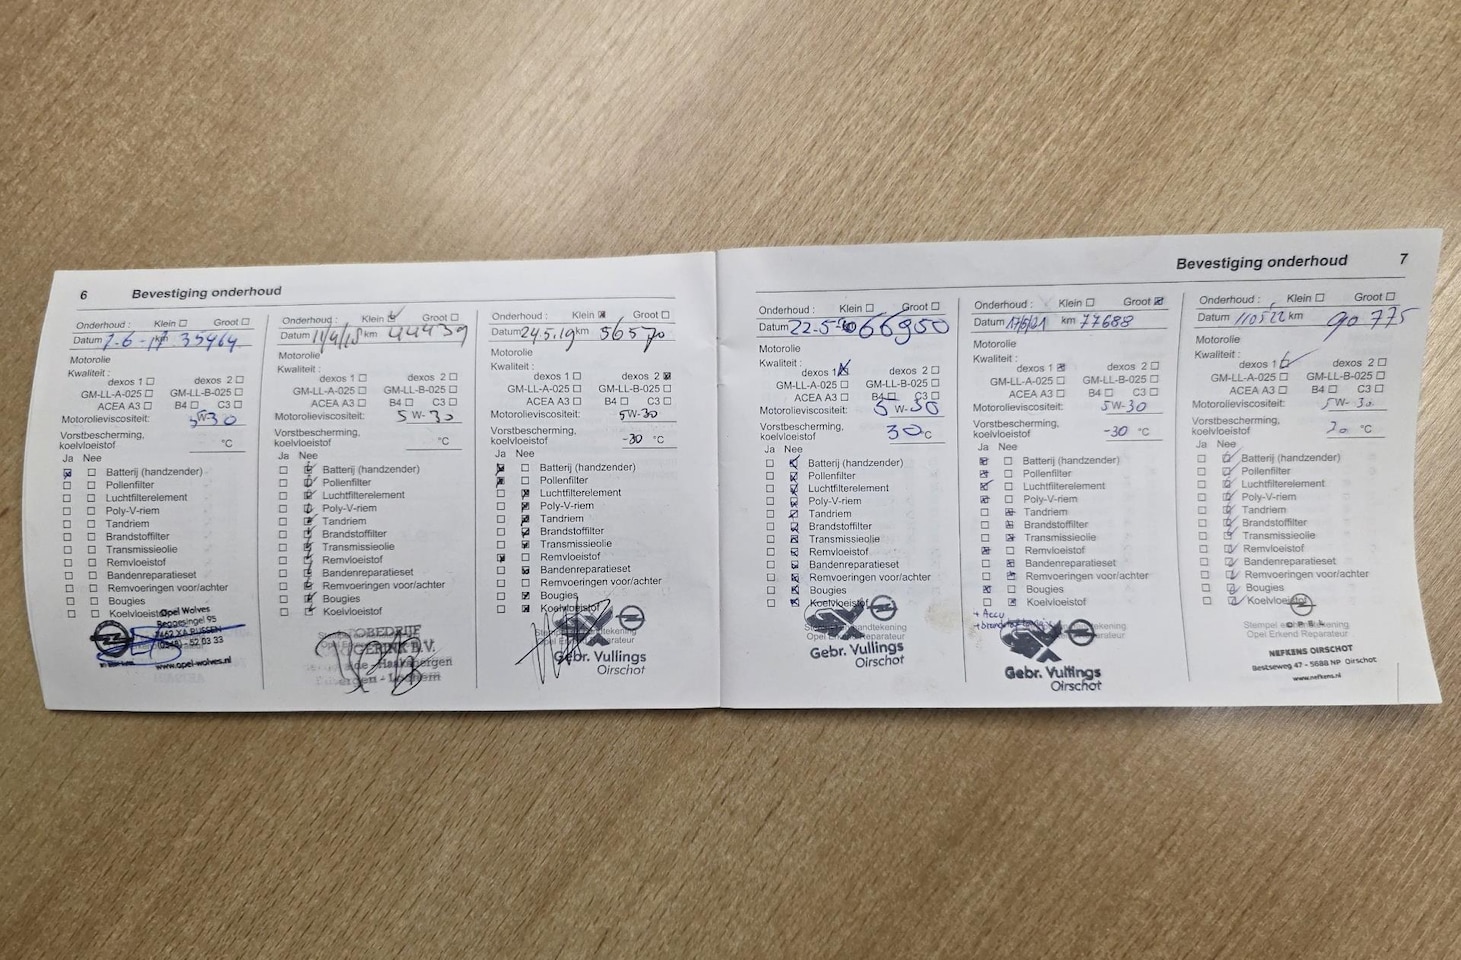 6 Bevestiging onderhoud
Onderhoud : Klein ☐ Groot ☐
Datum 2-6-17 km 35464
Motorolie
Kwaliteit :
dexos 1 ☐ dexos 2 ☐
GM-LL-A-025 ☐ GM-LL-B-025 ☐
ACEA A3 ☐ B4 ☐ C3 ☐
Motorolieviscositeit: 5W-30
Vorstbescherming,
koelvloeistof °C
Ja Nee
☒ ☐ Batterij (handzender)
☐ ☐ Pollenfilter
☐ ☐ Luchtfilterelement
☐ ☐ Poly-V-riem
☐ ☐ Tandriem
☐ ☐ Brandstoffilter
☐ ☐ Transmissieolie
☐ ☐ Remvloeistof
☐ ☐ Bandenreparatieset
☐ ☐ Remvoeringen voor/achter
☐ ☐ Bougies
☐ ☐ Koelvloeistof
Opel Wolves
Reggesingel 95
7462 XA RIJSSEN
(0548) - 52 03 33
www.opel-wolves.nl
Onderhoud : Klein ☑ Groot ☐
Datum 11/4/18 km 44439
Motorolie
Kwaliteit :
dexos 1 ☐ dexos 2 ☐
GM-LL-A-025 ☐ GM-LL-B-025 ☐
ACEA A3 ☐ B4 ☐ C3 ☐
Motorolieviscositeit: 5 W-30
Vorstbescherming,
koelvloeistof °C
Ja Nee
☐ ☑ Batterij (handzender)
☐ ☑ Pollenfilter
☐ ☑ Luchtfilterelement
☐ ☑ Poly-V-riem
☐ ☑ Tandriem
☐ ☑ Brandstoffilter
☐ ☑ Transmissieolie
☐ ☑ Remvloeistof
☐ ☑ Bandenreparatieset
☐ ☑ Remvoeringen voor/achter
☐ ☑ Bougies
☐ ☑ Koelvloeistof
TOBEDRIJF
GERINK B.V.
Haaksbergen
Lochem
Onderhoud : Klein ☒ Groot ☐
Datum 24.5.19 km 56570
Motorolie
Kwaliteit :
dexos 1 ☐ dexos 2 ☒
GM-LL-A-025 ☐ GM-LL-B-025 ☐
ACEA A3 ☐ B4 ☐ C3 ☐
Motorolieviscositeit: 5W-30
Vorstbescherming,
koelvloeistof -30 °C
Ja Nee
☒ ☐ Batterij (handzender)
☒ ☐ Pollenfilter
☐ ☒ Luchtfilterelement
☐ ☒ Poly-V-riem
☐ ☒ Tandriem
☐ ☒ Brandstoffilter
☐ ☒ Transmissieolie
☒ ☐ Remvloeistof
☐ ☒ Bandenreparatieset
☐ ☐ Remvoeringen voor/achter
☐ ☒ Bougies
☐ ☒ Koelvloeistof
Opel Erkend Reparateur
Gebr. Vullings
Oirschot
Bevestiging onderhoud 7
Onderhoud : Klein ☐ Groot ☐
Datum 22-5- 66950
Motorolie
Kwaliteit :
dexos 1 ☒ dexos 2 ☐
GM-LL-A-025 ☐ GM-LL-B-025 ☐
ACEA A3 ☐ B4 ☐ C3 ☐
Motorolieviscositeit: 5 W-30
Vorstbescherming,
koelvloeistof 30 °C
Ja Nee
☐ ☒ Batterij (handzender)
☐ ☒ Pollenfilter
☐ ☒ Luchtfilterelement
☐ ☒ Poly-V-riem
☐ ☒ Tandriem
☐ ☒ Brandstoffilter
☐ ☒ Transmissieolie
☐ ☒ Remvloeistof
☐ ☒ Bandenreparatieset
☐ ☒ Remvoeringen voor/achter
☐ ☒ Bougies
☐ ☒ Koelvloeistof
Opel Erkend Reparateur
Gebr. Vullings
Oirschot
Onderhoud : Klein ☐ Groot ☒
Datum 17/5/21 km 77688
Motorolie
Kwaliteit :
dexos 1 ☒ dexos 2 ☐
GM-LL-A-025 ☐ GM-LL-B-025 ☐
ACEA A3 ☐ B4 ☐ C3 ☐
Motorolieviscositeit: 5W-30
Vorstbescherming,
koelvloeistof -30 °C
Ja Nee
☒ ☐ Batterij (handzender)
☒ ☐ Pollenfilter
☒ ☐ Luchtfilterelement
☒ ☐ Poly-V-riem
☐ ☒ Tandriem
☐ ☒ Brandstoffilter
☐ ☒ Transmissieolie
☒ ☐ Remvloeistof
☐ ☒ Bandenreparatieset
☐ ☒ Remvoeringen voor/achter
☒ ☐ Bougies
☐ ☒ Koelvloeistof
+ Accu
Opel Erkend Reparateur
Gebr. Vullings
Oirschot
Onderhoud : Klein ☐ Groot ☐
Datum 110522 km 90775
Motorolie
Kwaliteit :
dexos 1 ☑ dexos 2 ☐
GM-LL-A-025 ☐ GM-LL-B-025 ☐
ACEA A3 ☐ B4 ☐ C3 ☐
Motorolieviscositeit: 5W-30
Vorstbescherming,
koelvloeistof 20 °C
Ja Nee
☐ ☑ Batterij (handzender)
☐ ☑ Pollenfilter
☐ ☑ Luchtfilterelement
☐ ☑ Poly-V-riem
☐ ☑ Tandriem
☐ ☑ Brandstoffilter
☐ ☑ Transmissieolie
☐ ☑ Remvloeistof
☐ ☑ Bandenreparatieset
☐ ☑ Remvoeringen voor/achter
☐ ☑ Bougies
☐ ☑ Koelvloeistof
OPEL
Stempel en handtekening
Opel Erkend Reparateur
NEFKENS OIRSCHOT
Bestseweg 47 - 5688 NP Oirschot
www.nefkens.nl